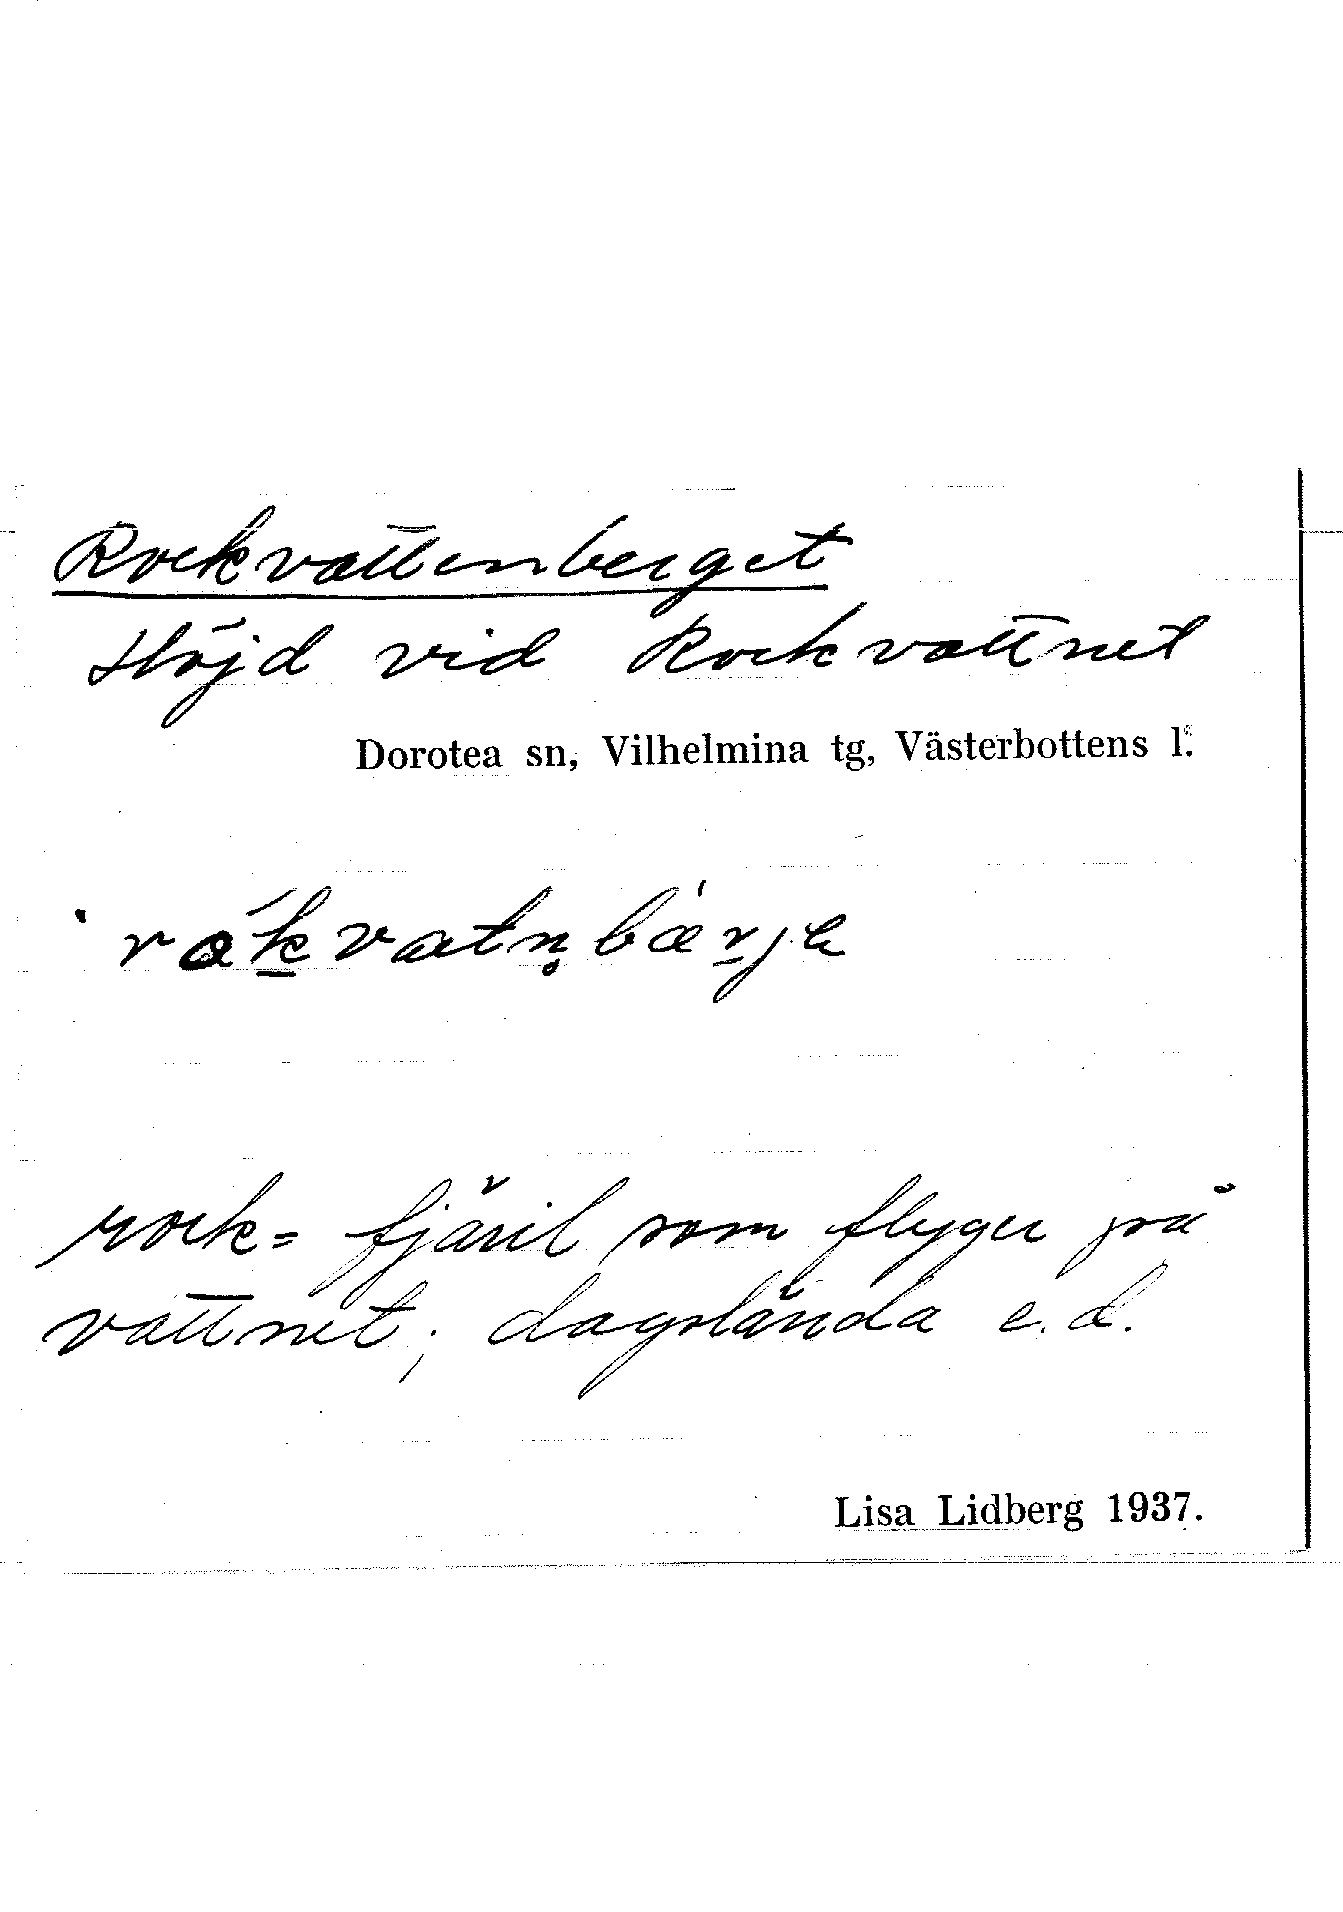 Rockvattenberget
Höjd vid Rockvattnet
Dorotea sn, Vilhelmina tg, Västerbottens l.
råk̠vatn̥bær̠je
rock= fjäril som flyger på
vattnet; dagslända e.d.
Lisa Lidberg 1937.